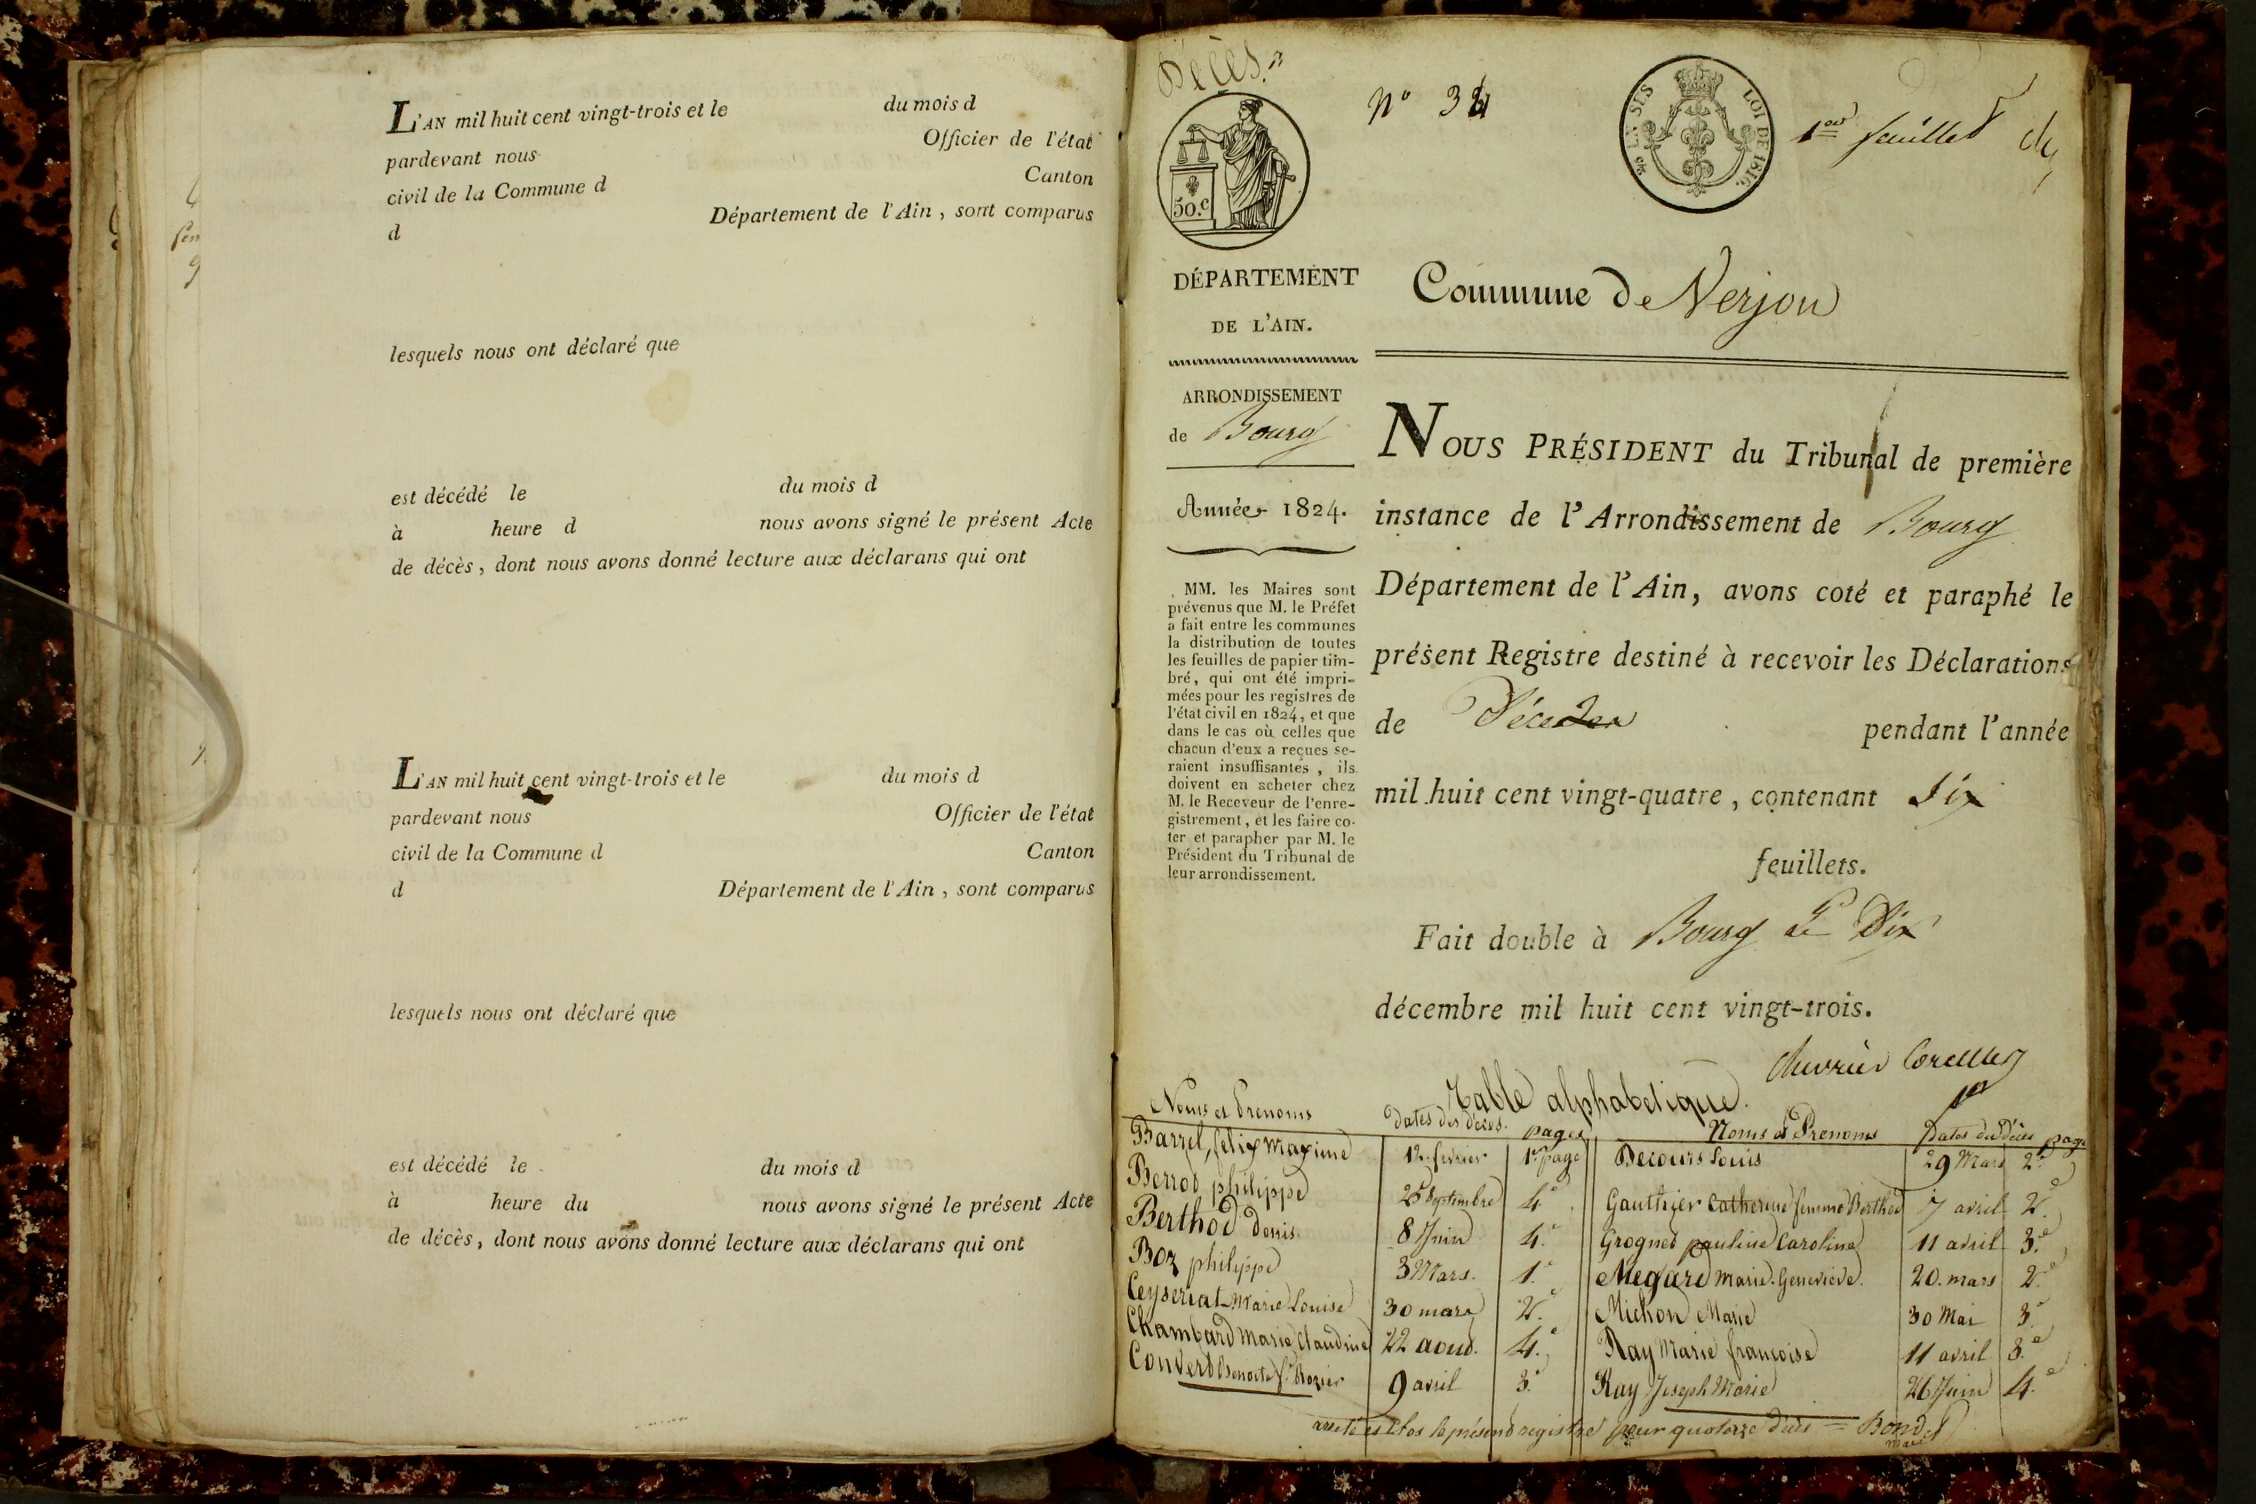 L'AN mil huit cent vingt-trois et le du mois d
pardevant nous Officier de l'état
civil de la Commune d Canton
d Département de l'Ain, sont comparus
lesquels nous ont déclaré que
est décédé le du mois d
à heure d nous avons signé le présent Acte
de décès, dont nous avons donné lecture aux déclarans qui ont
L'AN mil huit cent vingt-trois et le du mois d
pardevant nous Officier de l'état
civil de la Commune d Canton
d Département de l'Ain, sont comparus
lesquels nous ont déclaré que
est décédé le du mois d
à heure du nous avons signé le présent Acte
de décès, dont nous avons donné lecture aux déclarans qui ont
Décès.
N° 34
LOI DE 1816.
1er feuillet
50.c
DÉPARTEMENT
DE L'AIN.
Commune de Nerjon
ARRONDISSEMENT
de Bourg
Année 1824.
MM. les Maires sont
prévenus que M. le Préfet
a fait entre les communes
la distribution de toutes
les feuilles de papier tim-
bré, qui ont été impri-
mées pour les registres de
l'état civil en 1824, et que
dans le cas où celles que
chacun d'eux a reçues se-
raient insuffisantes, ils
doivent en acheter chez
M. le Receveur de l'enre-
gistrement, et les faire co-
ter et parapher par M. le
Président du Tribunal de
leur arrondissement.
NOUS PRÉSIDENT du Tribunal de première
instance de l'Arrondissement de Bourg
Département de l'Ain, avons coté et paraphé le
présent Registre destiné à recevoir les Déclarations
de Décès pendant l'année
mil huit cent vingt-quatre, contenant six
feuillets.
Fait double à Bourg le Dix
décembre mil huit cent vingt-trois.
Table alphabetique.
Noms et Prenoms Dates des Décès. pages Noms et Prenoms Dates des Décès page
Barrel, felix Maxime 12. fevrier 1re page Decours Louis 29 Mars 2e
Berrod philippe 25 Septembre 4e Gauthier Catherine femme Berthod 7 avril 2e
Berthod denis 8 Juin 4e Grognet pauline Caroline 11 avril 3e
Boz philippe 3 Mars. 1e Megard Marie Genevieve. 20. mars 2e
Ceyseriat Marie Louise 30 mars 2e Michon Marie 30 Mai 3e
Chambard Marie Claudine 22 aout. 4e Ray Marie francoise 11 avril 3e
Convert Benoite fe Rozier 9 avril 3e Ray Joseph Marie 26 Juin 4e
arreté et Clos le présent registre pour quatorze décès = Bondet
Maire